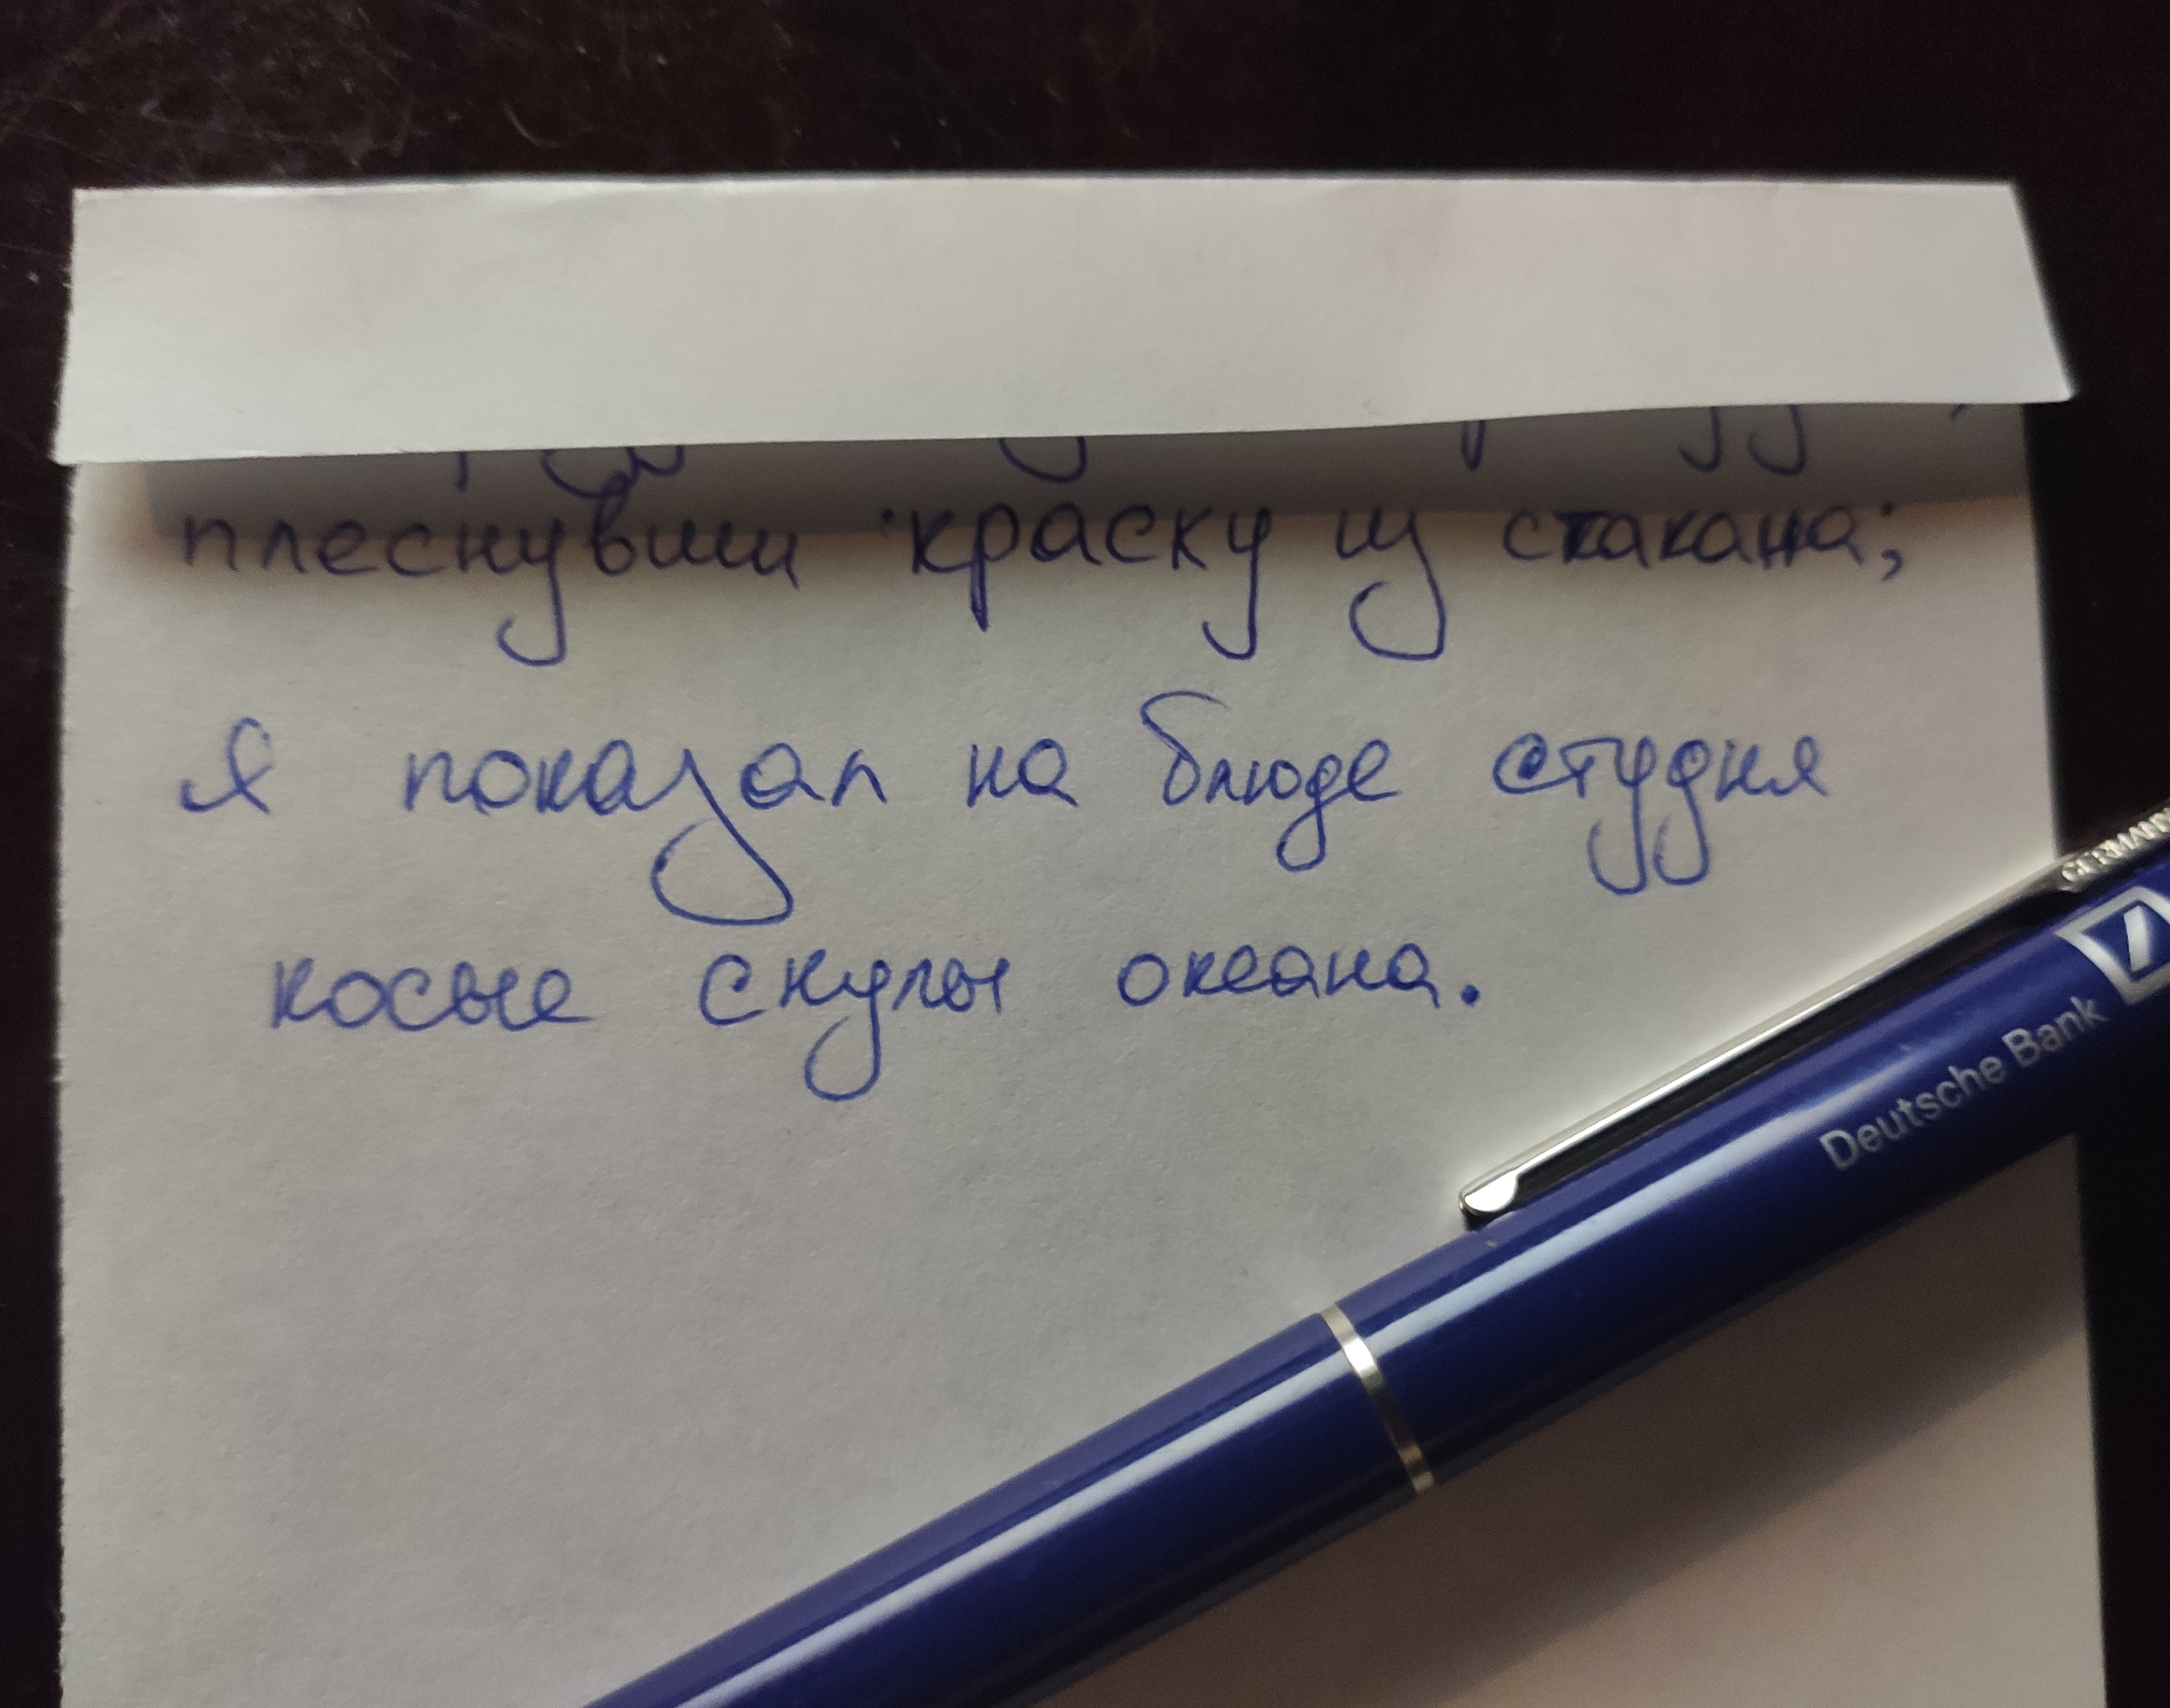 плеснувши краску из стакана;
Я показал на блюде студня
косые скулы океана.
GERMANY
Deutsche Bank